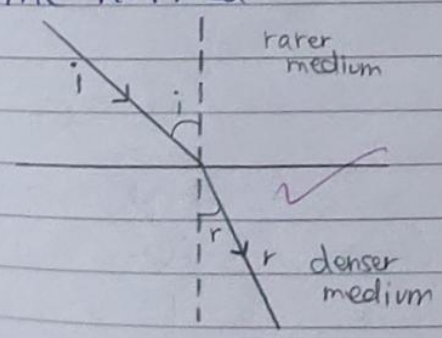 rarer
medium
i
i
r
r
denser
medium